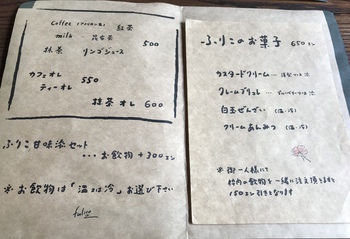 coffee
紅茶
milk
昆布茶
抹茶 リンゴジュース
500
カフェオレ
ティーオレ
550
抹茶オレ 600
ふりこ甘味添セット
…お飲物+300エン
※お飲物は「温又は冷」お選び下さい
ふりこのお菓子 650エン
カスタードクリーム
クレームブリュレ
白玉ぜんざい (温・冷)
クリームあんみつ
※御一人様にて
枠内の飲物を一緒に注文頂きますと
150エン引きとなります